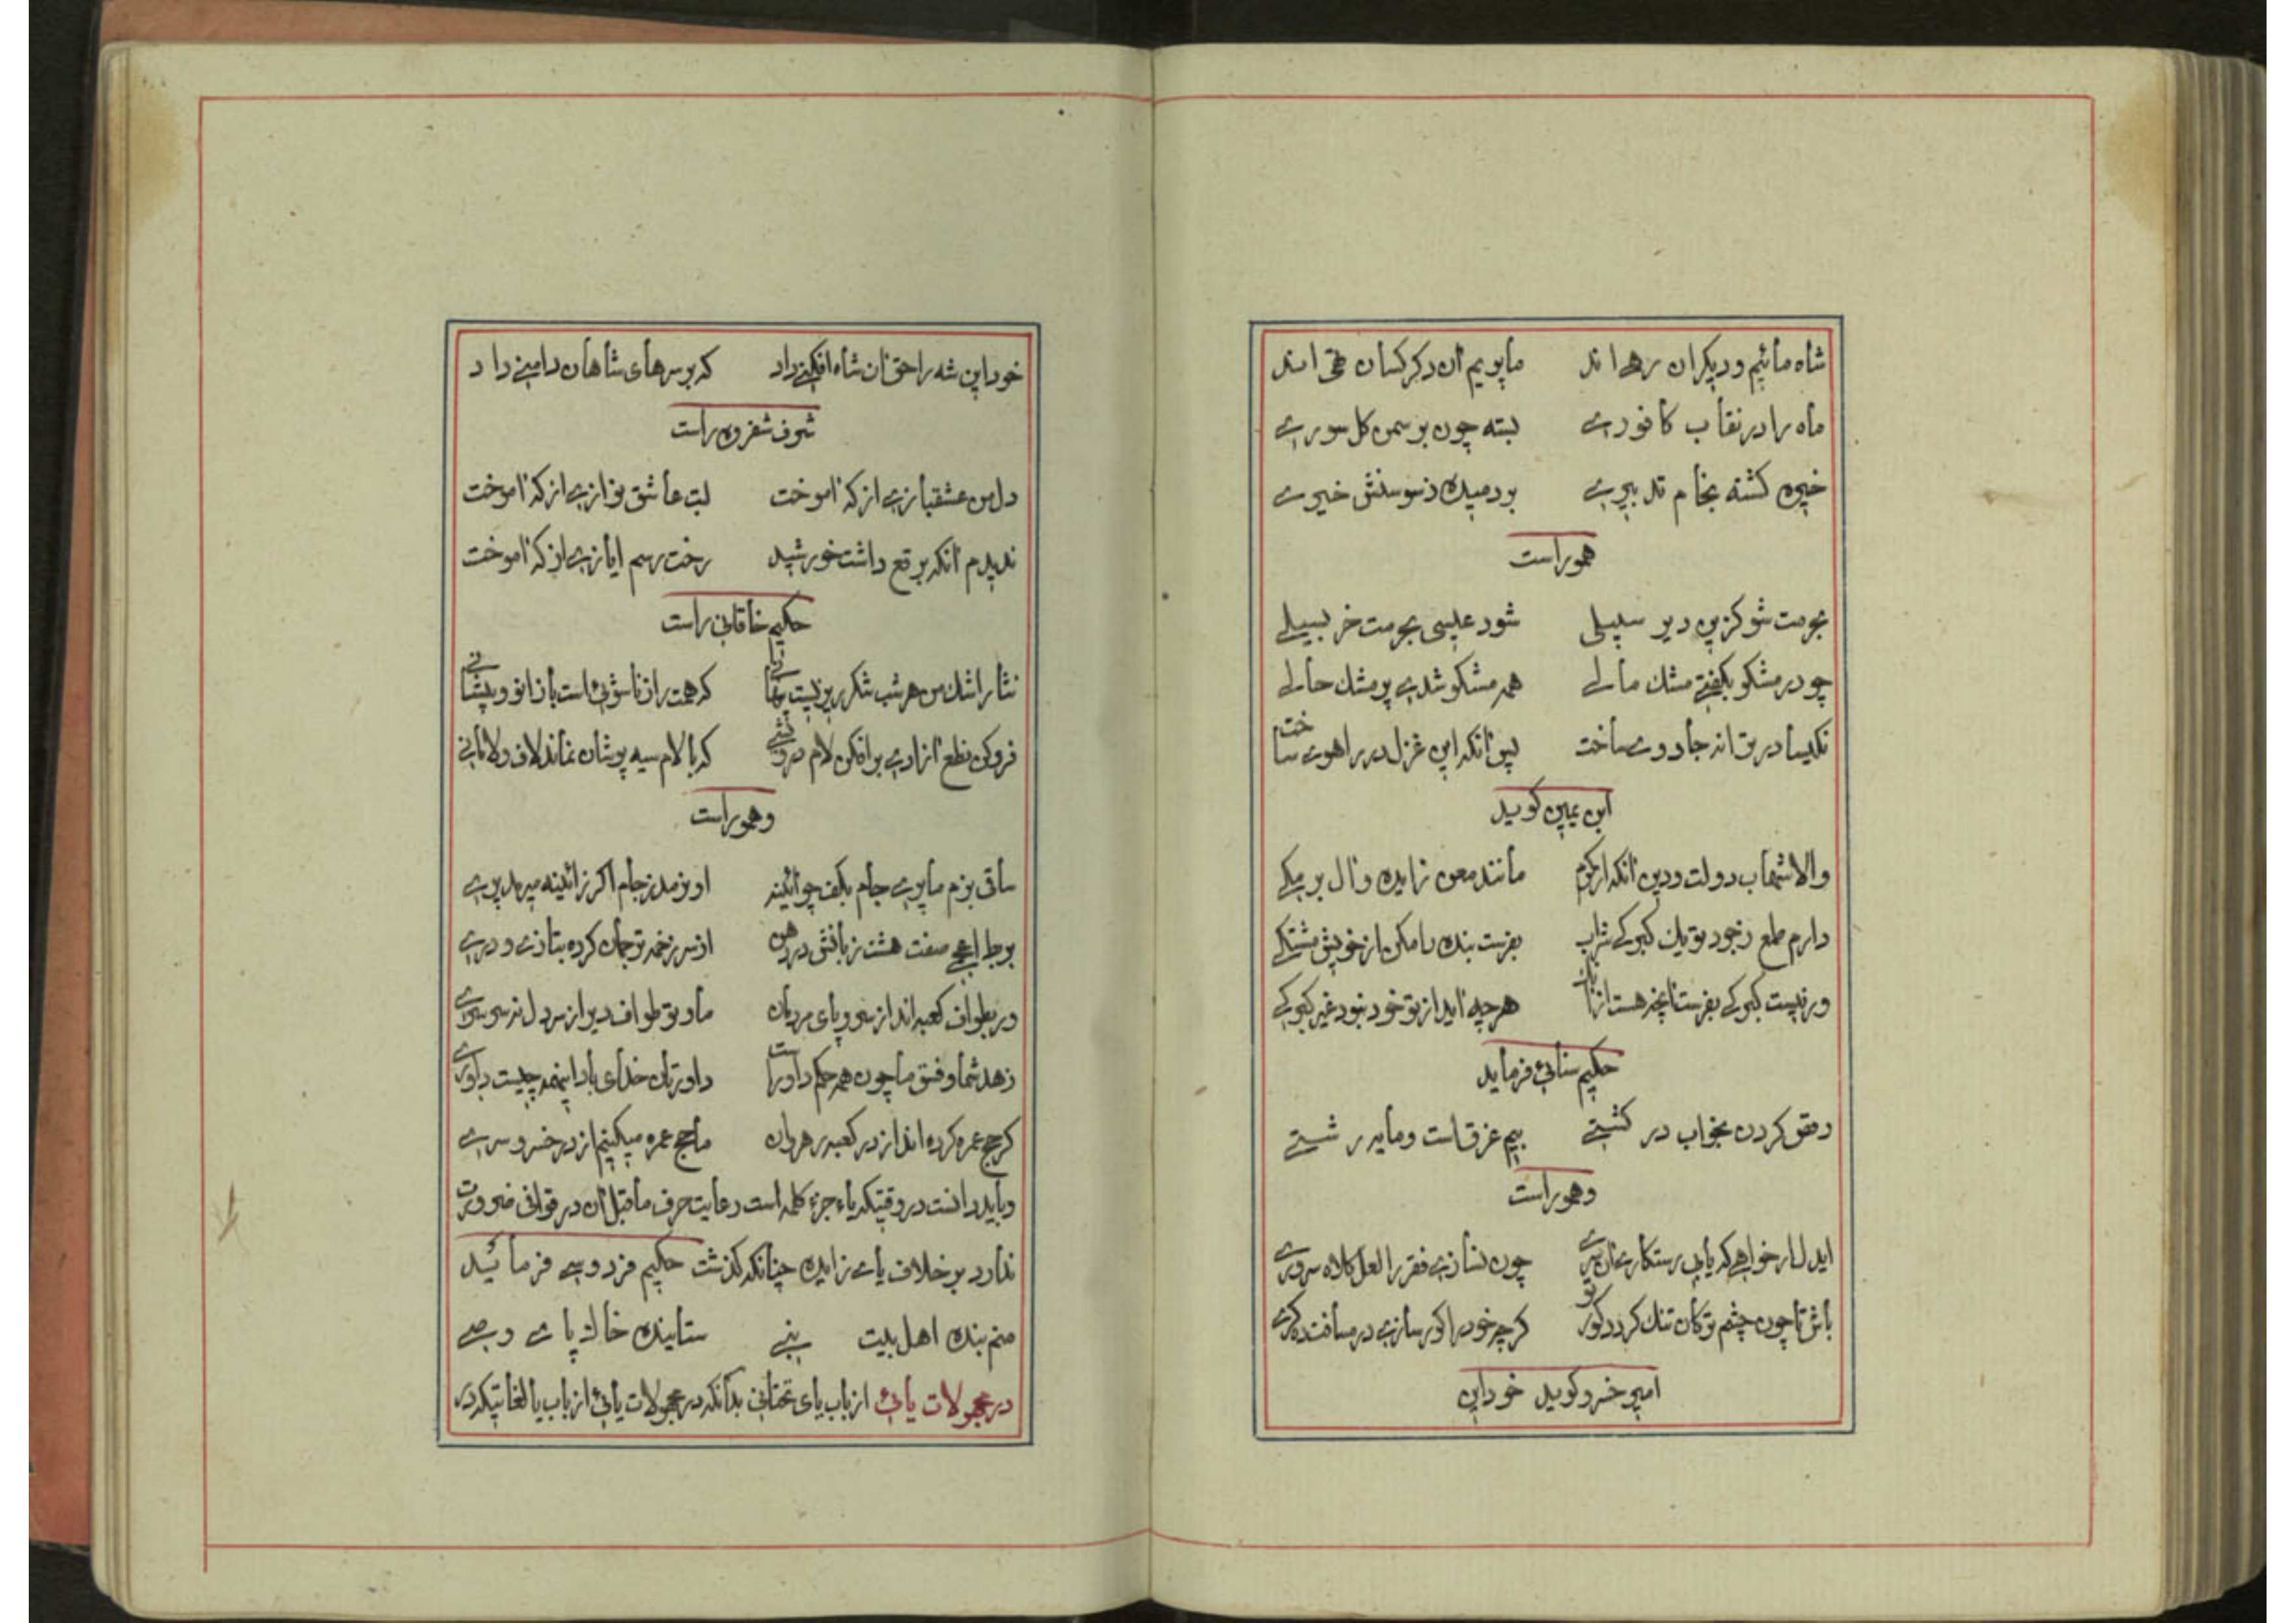 شاه مائیم و دیکران رهی اند مابویم آن دکر کسان همی اند
ماه را در نقاب کافوری بسته چون بر سمن کل سوری
خیره کشته بخام تدبیری بر دمیده ز سوسنش خیری
هموراست
بحرمت شو کزین دیر سپیلی شود عیسی بحرمت خر بسیلی
چو در مشکو بکفتی مشک مالی همه مشکو شدی پر مشک حالی
نکیسا در ترانه جادوی ساخت پس آنکه این غزل در راهوی ساخت
ابن یمین کوید
والا شهاب دولت و دین آنکه از کرم مانند معن زایده و آل برمکی
دارم طمع ز جود تو یک کبوکی شراب بفرست بنده را مکن از خویش مشتکی
ور نیست کبوکی بفرست آنچه هست از آنک هرچه آید از تو خود نبود غیر کبوکی
حکیم سنائی فرماید
دمق کردن بخواب در کشتی بیم غرق است و مایه ر شستی
وهوراست
ایدل ار خواهی که یابی رستکاری آن سری چون نسازی فقر را لعل کلاه سروری
باش تا چون چشم ترکان تنک کردد کور تو کرچه خود را کور سازی در مسافت ده کری
امیر خسرو کوید خود این
خود این شه را حق آن شاه افکنی داد که بر سرهای شاهان دامنی داد
شرف شفروه راست
دل من عشقبازی از که آموخت لبت عاشق نوازی از که آموخت
ندیدم آنکه برقع داشت خورشید رخت رسم ایازی از که آموخت
حکیم خاقانی راست
نثار اشک من هر شب شکر ریزیست پنهانی که همت را زناشوئی است با زانو و پیشانی
فرو کن نطع آزادی بر افکن لام درویشی که با لام سیه پوشان نماند لاف و لامانی
وهموراست
ساقی بزم ما پری جام بکف چو آئینه او نرمد ز جام اکر ز آئینه میرمد پری
بربط اعجمی صفت هشت زبانش در دهن از سر زخمه ترجمان کرده بتازی و دری
ور بطواف کعبه اند از سر و پای مردمان ما و تو طواف دیر از سر دل نه سرسری
زهد شما و فسق ما چون همه حکم داور است داورتان خدای باد اینهمه چیست داوری
کر حج عمره کرده اند از در کعبه رهروان ما حج عمره میکنیم از در خسرو سری
و باید دانست در وقتیکه یاء جزء کلمه است رعایت حرف ماقبل آن در قوافی ضرورت
ندارد بر خلاف یای زایده چنانکه کذشت حکیم فردوسی فرمائید
منم بنده اهل بیت نبی ستاینده خاک پای وصی
در مجهولات یائی از باب یای تحتانی بدانکه در مجهولات یائی از باب یا لغاتیکه در